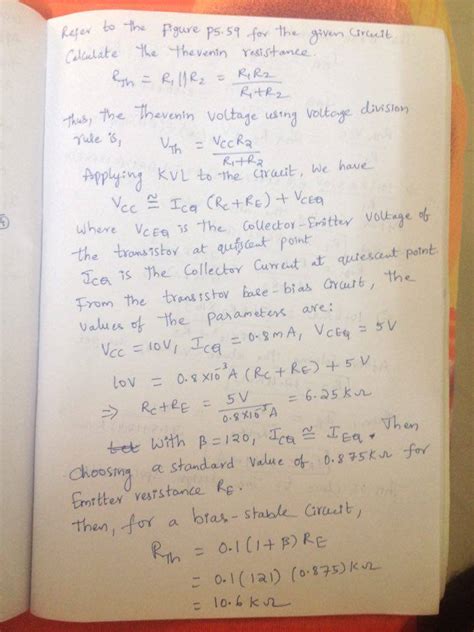 Refer to the Figure P5.59 for the given Circuit.
Calculate the Thevenin resistance.
R_Th = R₁||R₂ = R₁R₂ / (R₁+R₂)
Thus, the Thevenin Voltage using Voltage division
rule is, V_Th = V_CC R₂ / (R₁+R₂)
Applying KVL to the Circuit, We have
V_CC ≅ I_CQ (R_C+R_E) + V_CEQ
where V_CEQ is the Collector-Emitter Voltage of
the transistor at quiescent point
I_CQ is the Collector Current at quiescent point.
From the transistor base-bias Circuit, the
Values of the parameters are:
V_CC = 10V, I_CQ = 0.8mA, V_CEQ = 5V
10V = 0.8×10⁻³A (R_C+R_E) + 5V
⇒ R_C+R_E = 5V / 0.8×10⁻³A = 6.25KΩ
With β=120, I_CQ ≅ I_EQ. Then
Choosing a standard Value of 0.875KΩ for
Emitter resistance R_E.
Then, for a bias-stable Circuit,
R_Th = 0.1(1+β)R_E
= 0.1(121)(0.875)KΩ
= 10.6KΩ